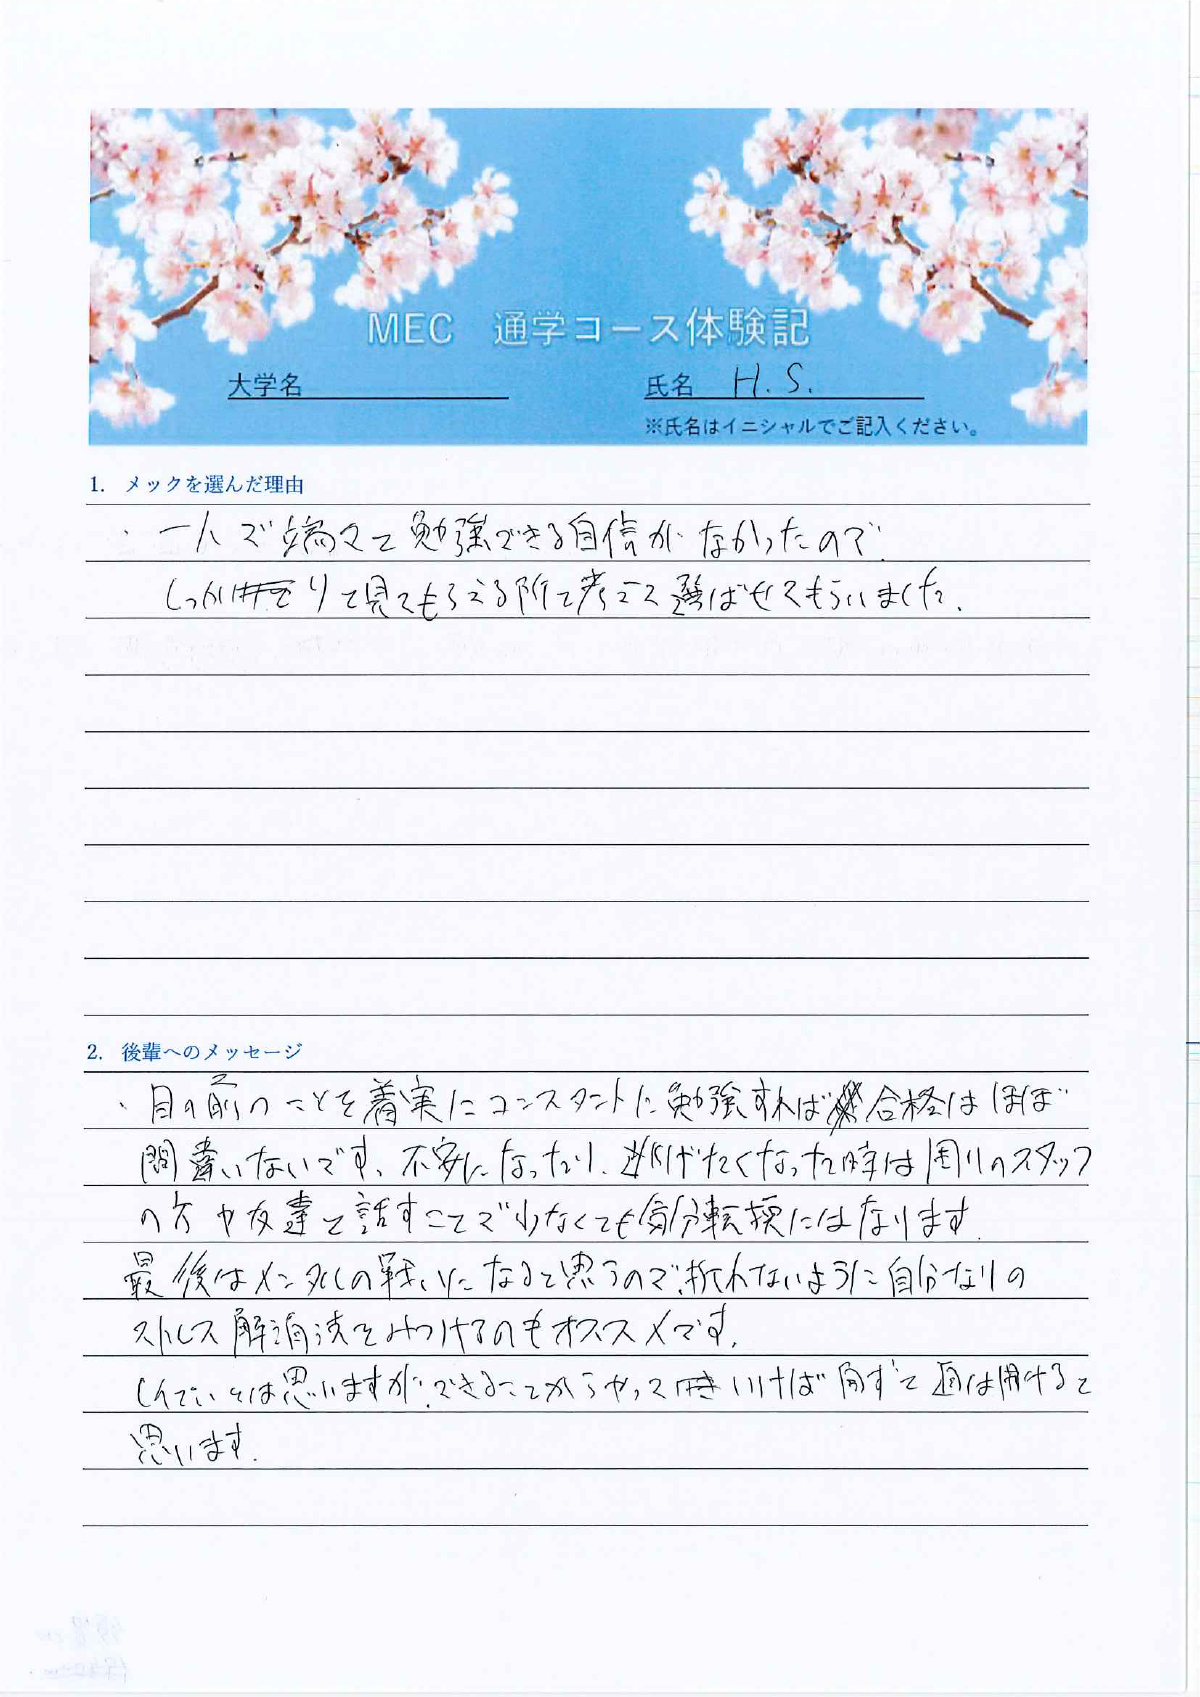 MEC 通学コース体験記
大学名
氏名 H.S.
※氏名はイニシャルでご記入ください。
1. メックを選んだ理由
・一人で端々て勉強できる自信がなかったので、
しっかりと見てもらえる所て考えて選ばせてもらいました。
2. 後輩へのメッセージ
・目の前のことを着実にコンスタントに勉強すれば合格はほぼ
間違いないです。不安になったり、逃げたくなった時は周りのスタッフ
の方や友達と話すことで少なくても気分転換にはなります。
最後はメンタルの戦いになると思うので、折れないように自分なりの
ストレス解消法をみつけるのもオススメです。
しんどいとは思いますが、できることからやって いけば 必ずと道は開けると
思います。